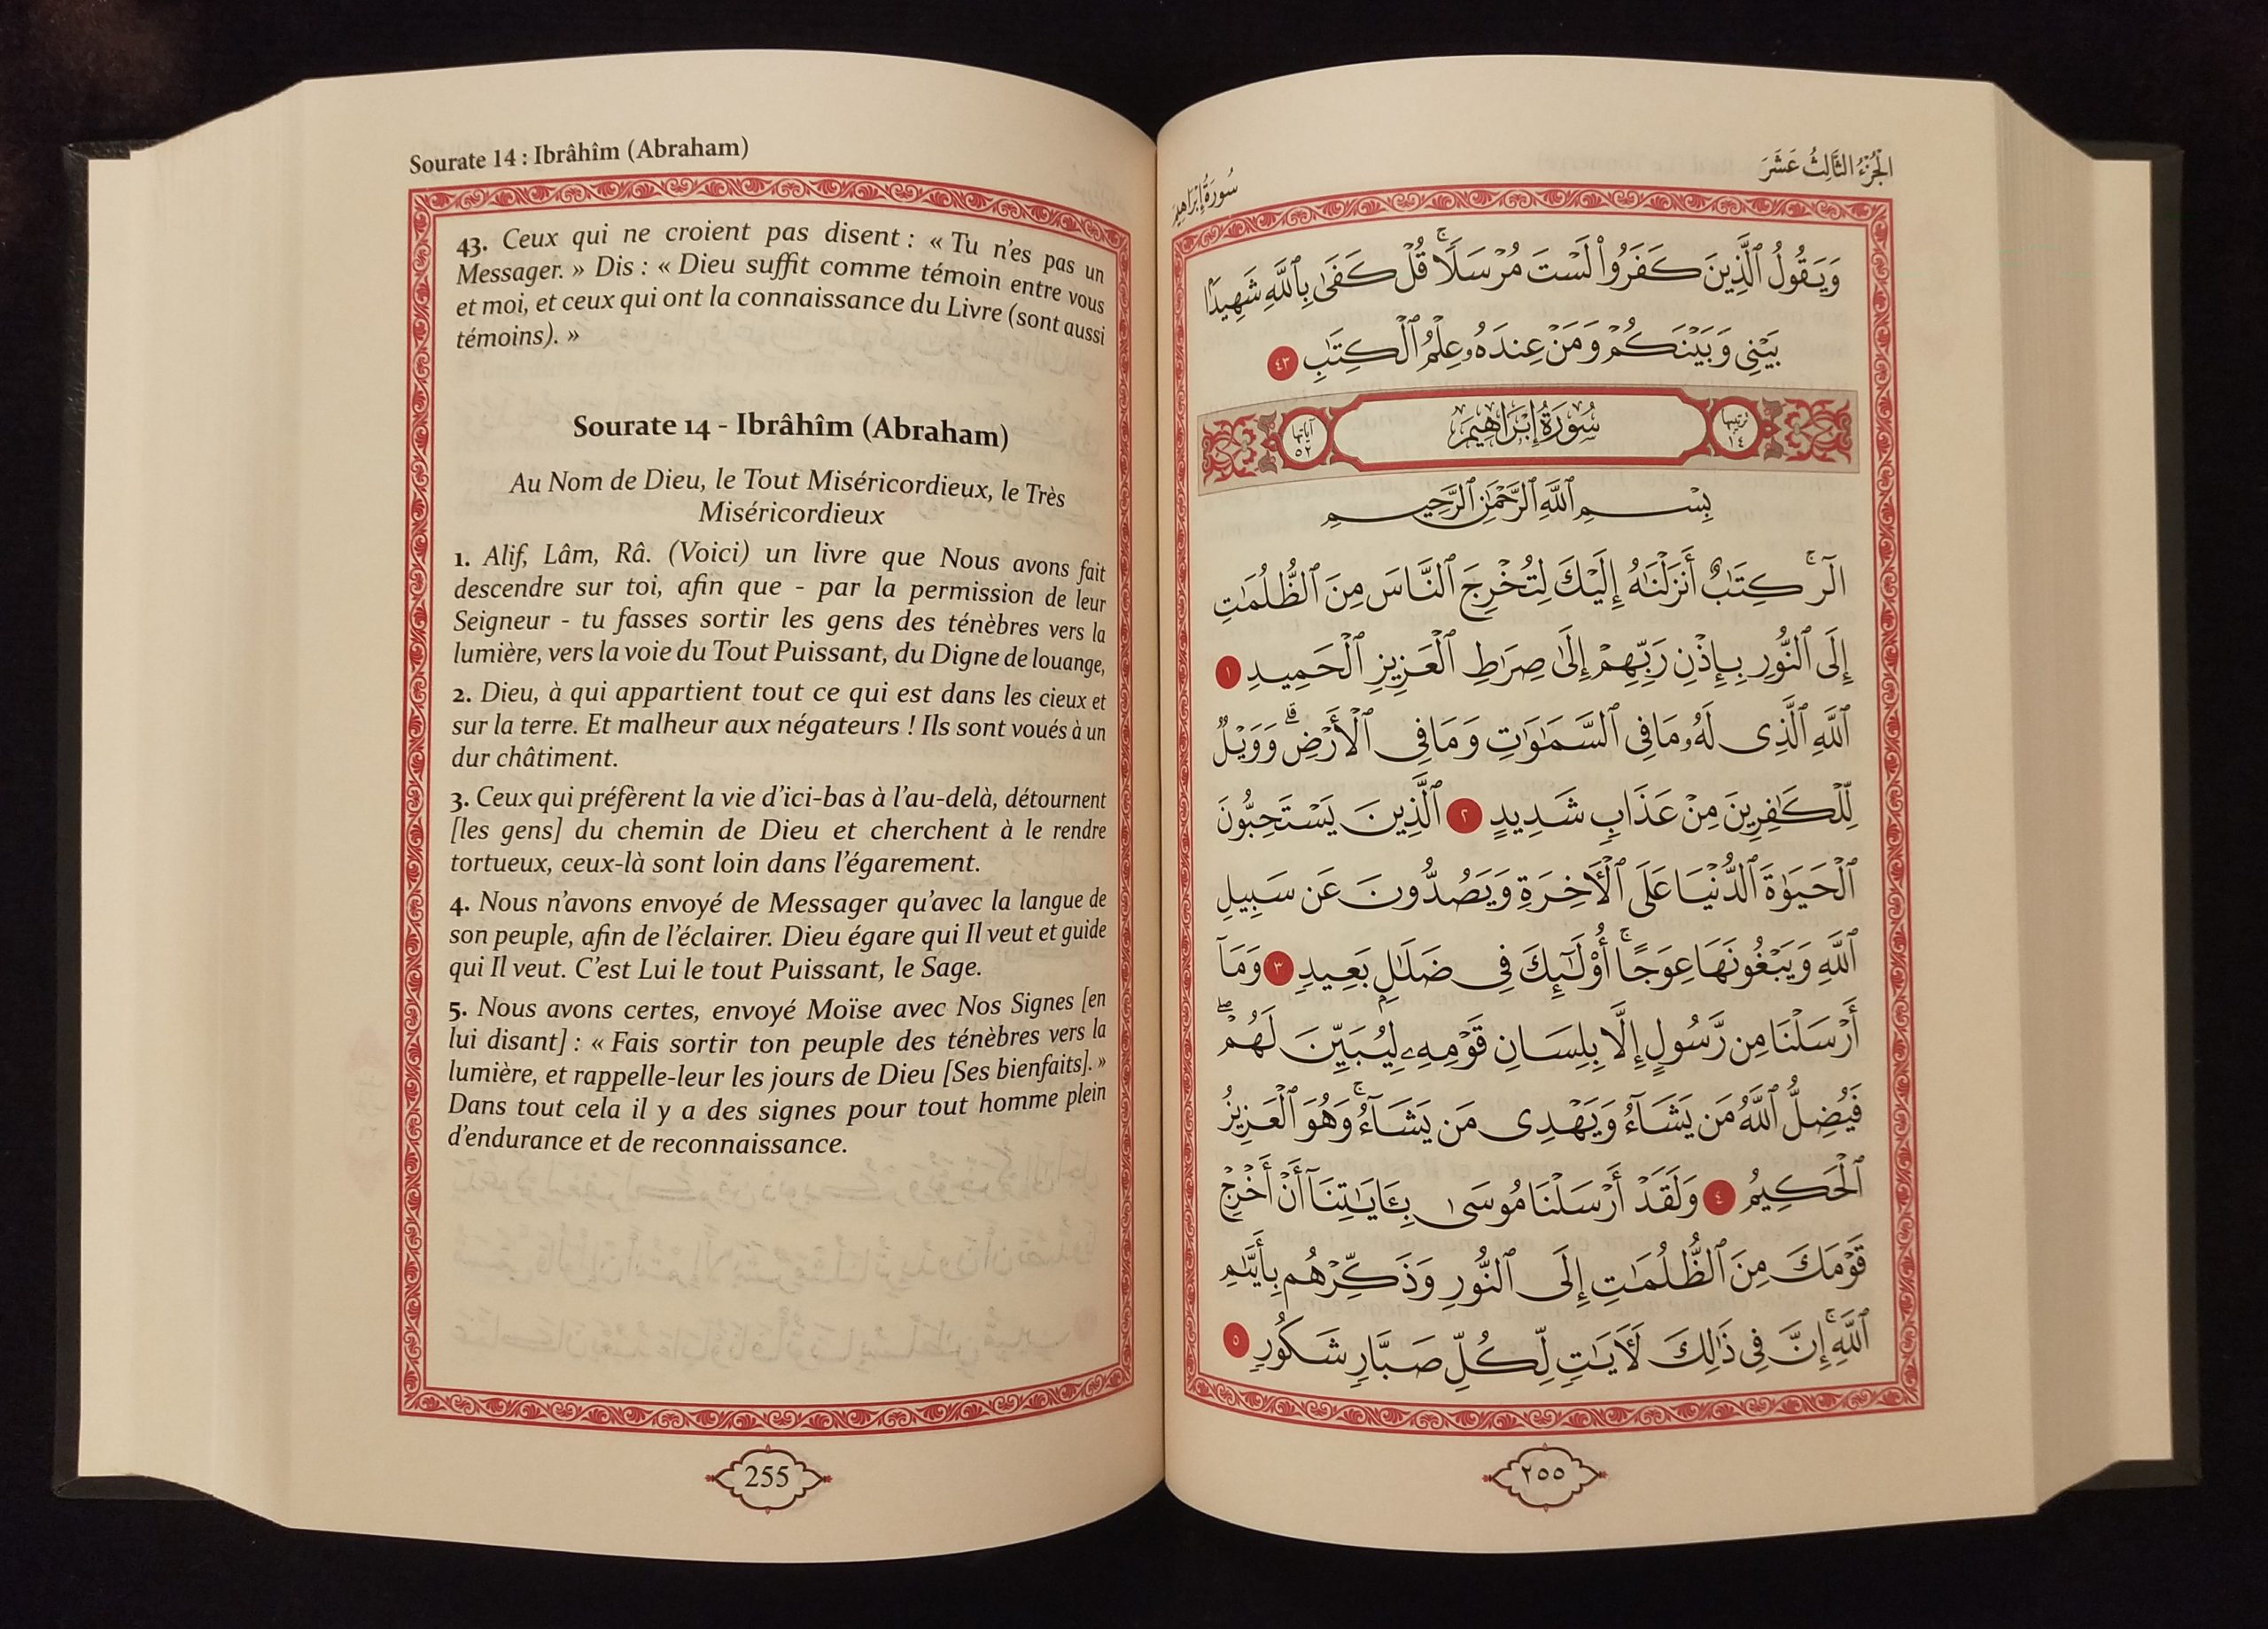 Sourate 14 : Ibrâhîm (Abraham)
43. Ceux qui ne croient pas disent : « Tu n'es pas un
Messager. » Dis : « Dieu suffit comme témoin entre vous
et moi, et ceux qui ont la connaissance du Livre (sont aussi
témoins). »
Sourate 14 - Ibrâhîm (Abraham)
Au Nom de Dieu, le Tout Miséricordieux, le Très
Miséricordieux
1. Alif, Lâm, Râ. (Voici) un livre que Nous avons fait
descendre sur toi, afin que - par la permission de leur
Seigneur - tu fasses sortir les gens des ténèbres vers la
lumière, vers la voie du Tout Puissant, du Digne de louange,
2. Dieu, à qui appartient tout ce qui est dans les cieux et
sur la terre. Et malheur aux négateurs ! Ils sont voués à un
dur châtiment.
3. Ceux qui préfèrent la vie d'ici-bas à l'au-delà, détournent
[les gens] du chemin de Dieu et cherchent à le rendre
tortueux, ceux-là sont loin dans l'égarement.
4. Nous n'avons envoyé de Messager qu'avec la langue de
son peuple, afin de l'éclairer. Dieu égare qui Il veut et guide
qui Il veut. C'est Lui le tout Puissant, le Sage.
5. Nous avons certes, envoyé Moïse avec Nos Signes [en
lui disant] : « Fais sortir ton peuple des ténèbres vers la
lumière, et rappelle-leur les jours de Dieu [Ses bienfaits]. »
Dans tout cela il y a des signes pour tout homme plein
d'endurance et de reconnaissance.
255
الجُزْءُ الثَّالِثُ عَشَرَ
سُورَةُ إِبْرَاهِيمَ
وَيَقُولُ ٱلَّذِينَ كَفَرُوا۟ لَسْتَ مُرْسَلًا ۚ قُلْ كَفَىٰ بِٱللَّهِ شَهِيدًۢا
بَيْنِى وَبَيْنَكُمْ وَمَنْ عِندَهُۥ عِلْمُ ٱلْكِتَٰبِ ٤٣
ترتيبها ١٤ سُورَةُ إِبْرَاهِيمَ آياتها ٥٢
بِسْمِ ٱللَّهِ ٱلرَّحْمَٰنِ ٱلرَّحِيمِ
الٓر ۚ كِتَٰبٌ أَنزَلْنَٰهُ إِلَيْكَ لِتُخْرِجَ ٱلنَّاسَ مِنَ ٱلظُّلُمَٰتِ
إِلَى ٱلنُّورِ بِإِذْنِ رَبِّهِمْ إِلَىٰ صِرَٰطِ ٱلْعَزِيزِ ٱلْحَمِيدِ ١
ٱللَّهِ ٱلَّذِى لَهُۥ مَا فِى ٱلسَّمَٰوَٰتِ وَمَا فِى ٱلْأَرْضِ ۗ وَوَيْلٌ
لِّلْكَٰفِرِينَ مِنْ عَذَابٍ شَدِيدٍ ٢ ٱلَّذِينَ يَسْتَحِبُّونَ
ٱلْحَيَوٰةَ ٱلدُّنْيَا عَلَى ٱلْأَخِرَةِ وَيَصُدُّونَ عَن سَبِيلِ
ٱللَّهِ وَيَبْغُونَهَا عِوَجًا ۚ أُو۟لَٰٓئِكَ فِى ضَلَٰلٍۭ بَعِيدٍ ٣ وَمَآ
أَرْسَلْنَا مِن رَّسُولٍ إِلَّا بِلِسَانِ قَوْمِهِۦ لِيُبَيِّنَ لَهُمْ ۖ
فَيُضِلُّ ٱللَّهُ مَن يَشَآءُ وَيَهْدِى مَن يَشَآءُ ۚ وَهُوَ ٱلْعَزِيزُ
ٱلْحَكِيمُ ٤ وَلَقَدْ أَرْسَلْنَا مُوسَىٰ بِـَٔايَٰتِنَآ أَنْ أَخْرِجْ
قَوْمَكَ مِنَ ٱلظُّلُمَٰتِ إِلَى ٱلنُّورِ وَذَكِّرْهُم بِأَيَّىٰمِ
ٱللَّهِ ۚ إِنَّ فِى ذَٰلِكَ لَأَيَٰتٍ لِّكُلِّ صَبَّارٍ شَكُورٍ ٥
٢٥٥